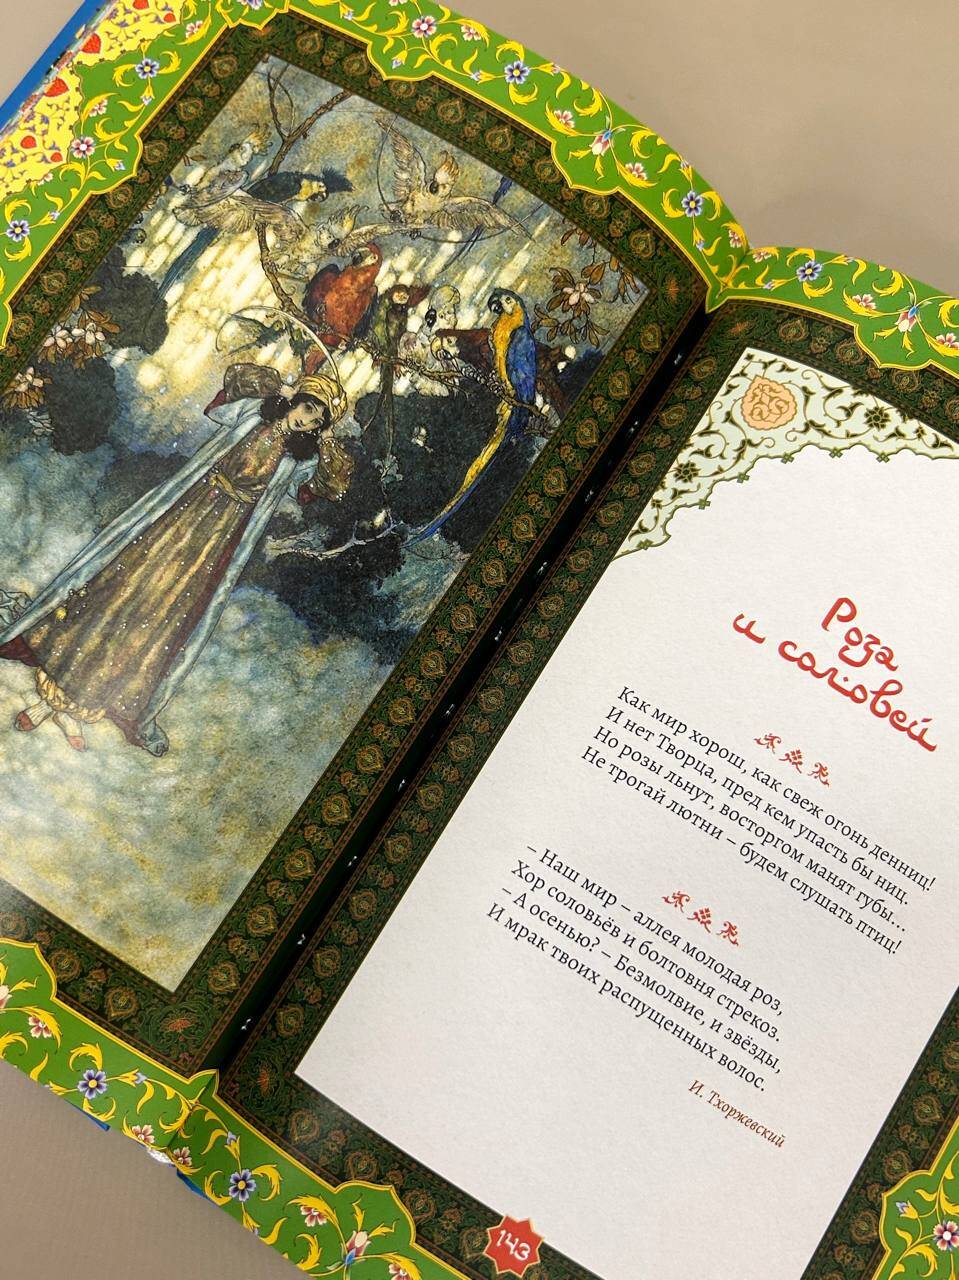 Роза
и соловей
Как мир хорош, как свеж огонь денниц!
И нет Творца, пред кем упасть бы ниц.
Но розы льнут, восторгом манят губы...
Не трогай лютни – будем слушать птиц!
– Наш мир – аллея молодая роз,
Хор соловьёв и болтовня стрекоз.
– А осенью? – Безмолвие, и звёзды,
И мрак твоих распущенных волос.
И. Тхоржевский
143